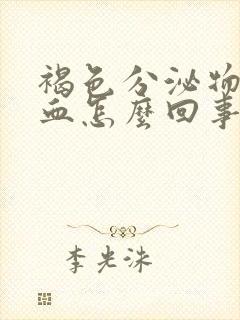 褐色分泌物
血怎麼回事
李光洙